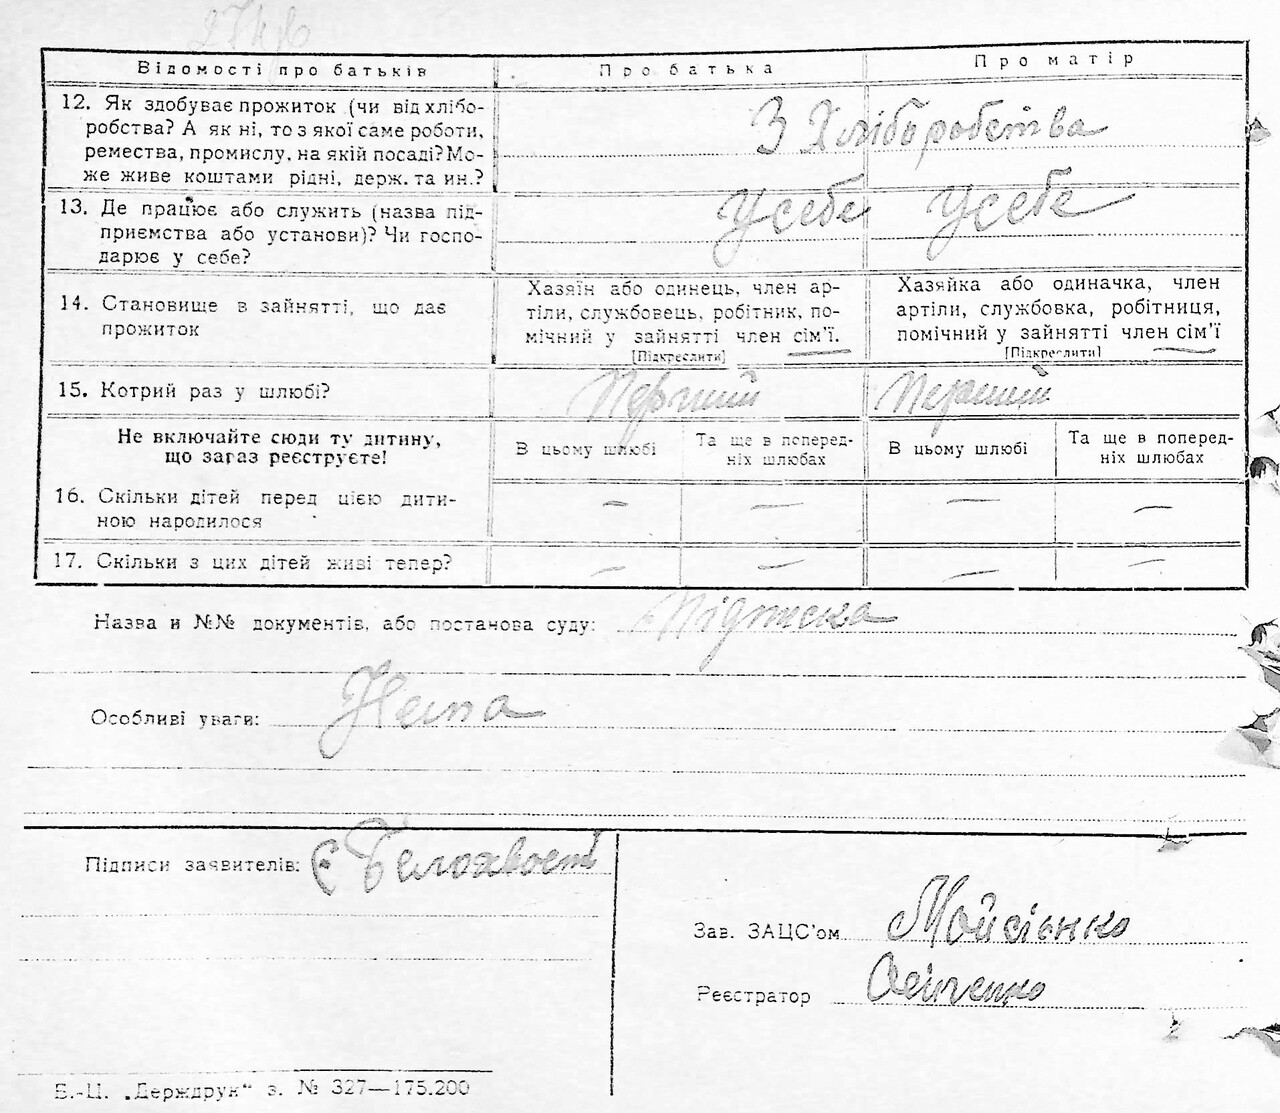 Відомості про батьків Про батька Про матір
12. Як здобуває прожиток (чи від хлібо-
робства? А як ні, то з якої саме роботи,
ремества, промислу, на якій посаді? Мо-
же живе коштами рідні, держ. та ин.?
З Хліборобства
13. Де працює або служить (назва під-
приємства або установи)? Чи госпо-
дарює у себе?
У себе У себе
14. Становище в зайнятті, що дає
прожиток
Хазяїн або одинець, член ар-
тілі, службовець, робітник, по-
мічний у зайнятті член сім'ї.
[Підкреслити]
Хазяйка або одиначка, член
артілі, службовка, робітниця,
помічний у зайнятті член сім'ї
[Підкреслити]
15. Котрий раз у шлюбі? Перший Перший
Не включайте сюди ту дитину,
що зараз реєструєте!
В цьому шлюбі
Та ще в поперед-
ніх шлюбах
В цьому шлюбі
Та ще в поперед-
ніх шлюбах
16. Скільки дітей перед цією дити-
ною народилося
— — — —
17. Скільки з цих дітей живі тепер? — — — —
Назва й №№ документів, або постанова суду: Підписка
Особливі уваги: Нема
Підписи заявителів: Є Белохвост
Зав. ЗАЦС'ом Мойсієнко
Реєстратор
Б.-Ц. „Держдрук“ з. № 327—175.200